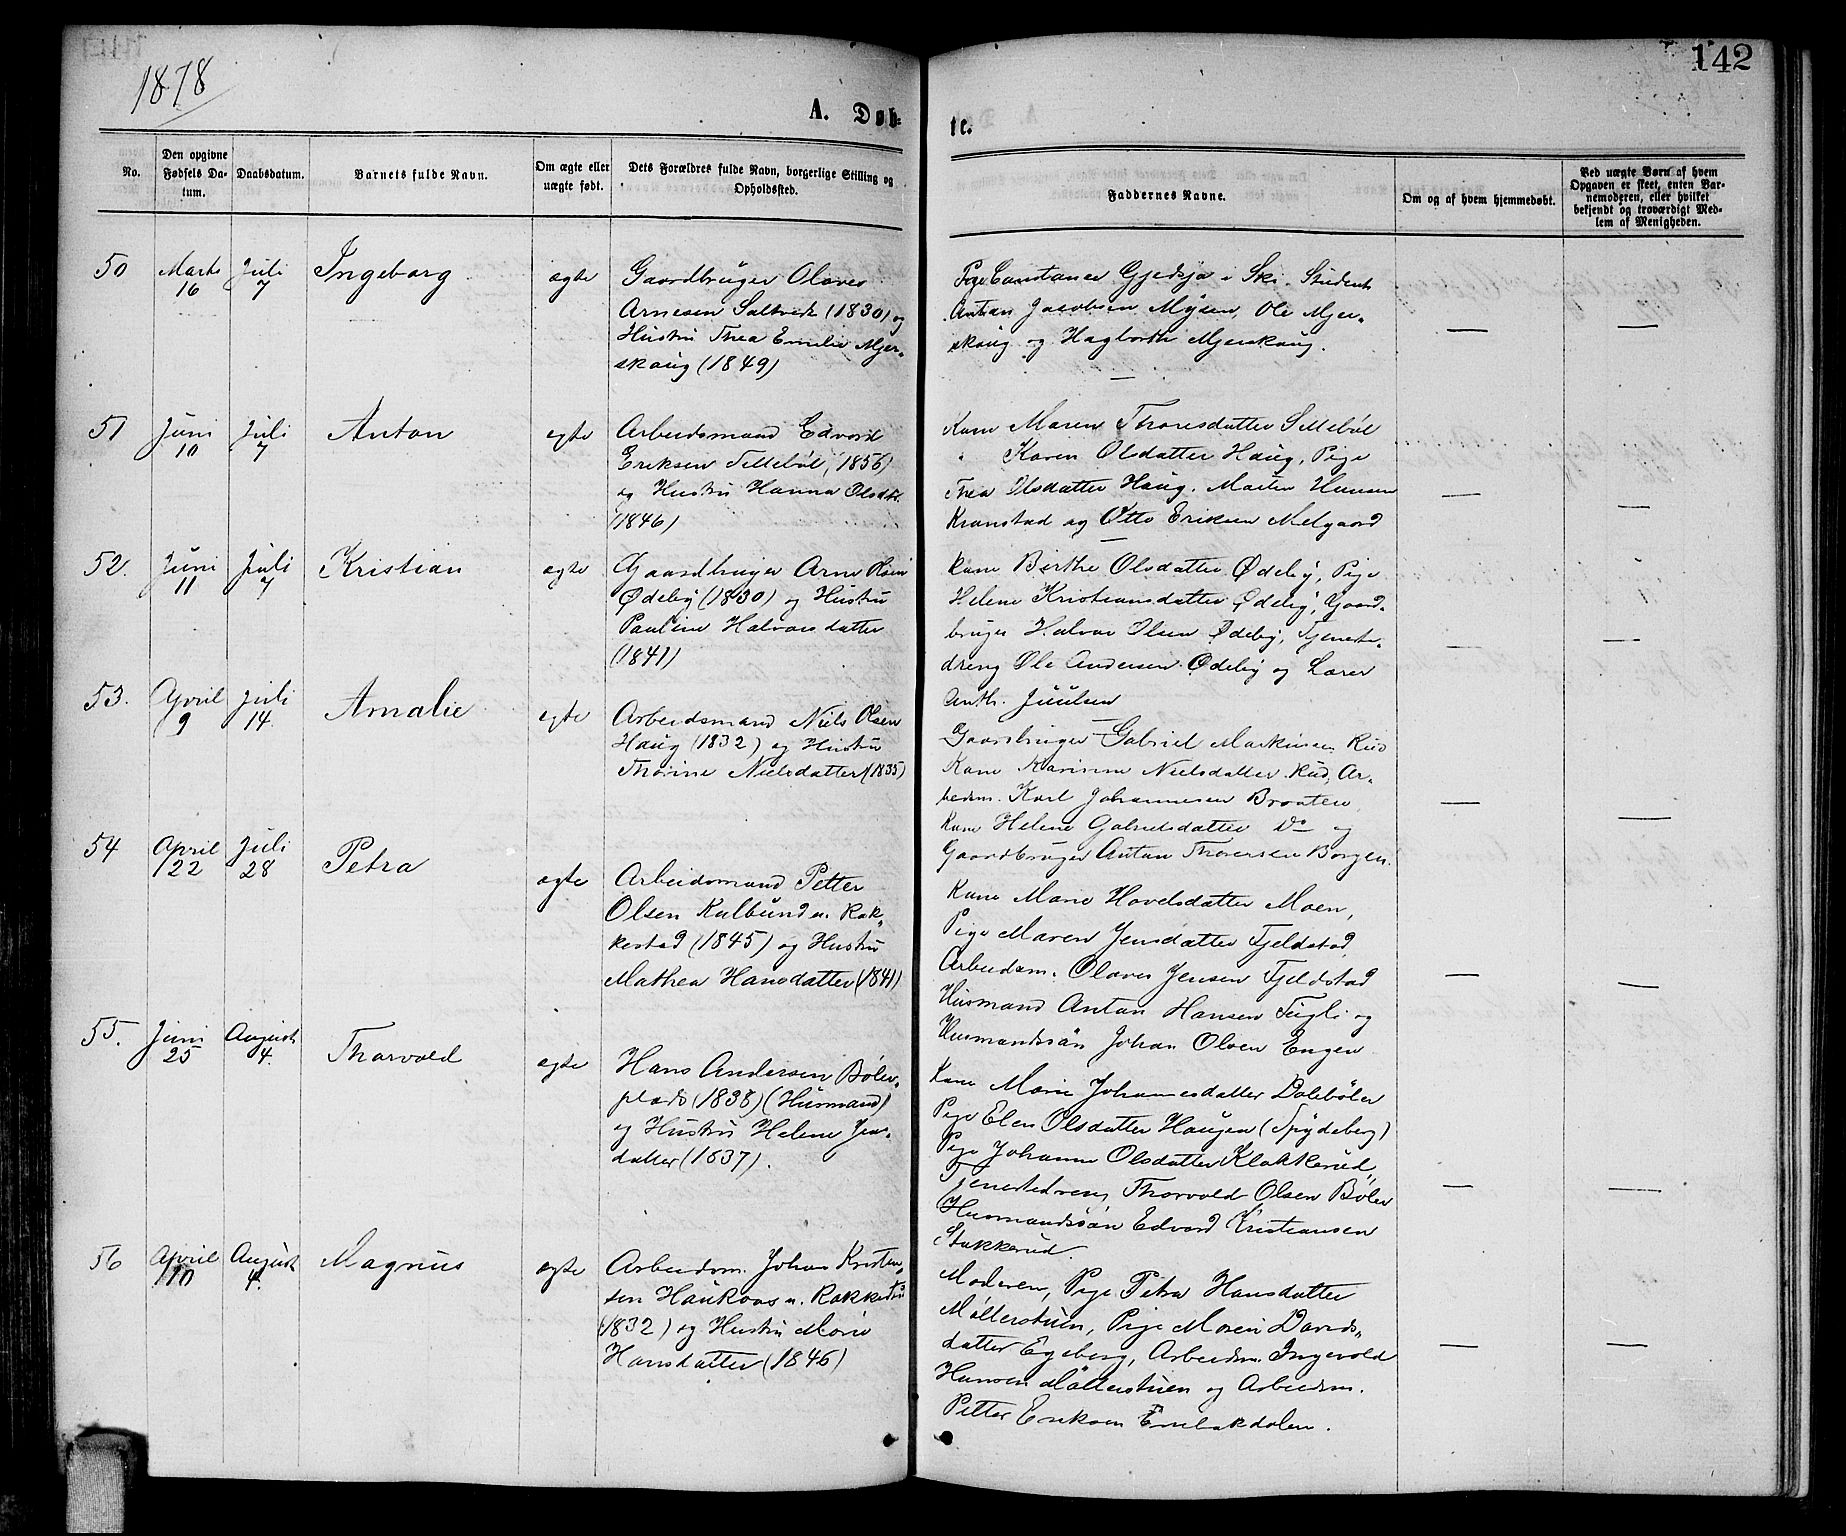 1878
142
A. Døb-
te.
No.
Den opgivne
Fødsels Da-
tum.
Daabsdatum.
Barnets fulde Navn.
Om ægte eller
uægte født.
Dets Forældres fulde Navn, borgerlige Stilling og
Opholdssted.
Faddernes Navne.
Om og af hvem hjemmedøbt.
Ved uægte Børn af hvem
Opgaven er skeet, enten Bar-
nemoderen, eller hvilket
bekjendt og troværdigt Med-
lem af Menigheden.
50
Marts
16
Juli
7
Ingeborg
ægte
Gaardbruger Olaves
Arnesen Saltvedt (1830) og
Hustru Thea Emilie Mjer-
skaug (1849)
Pige Constance Gjedsjø i Ski. Student
Anton Jacobsen Mysen, Ole Mjer-
skaug og Hagborth Mjerskaug.
—
—
51
Juni
10
Juli
7
Anton
ægte
Arbeidsmand Edvard
Eriksen Sittebøl, 1856)
og Hustru Hanna Olsdt.
(1846)
Kone Maren Thoresdatter Sittebøl
" Karen Olsdatter Haug, Pige
Thea Olsdatter Haug. Martin Hansen
Kranstad og Otto Eriksen Melgaard
—
—
52.
Juni
11
Juli
7
Kristian
ægte
Gaardbruger Arne Olsen
Ødeby (1830) og Hustru
Pauline Halvorsdatter
(1841)
Kone Birthe Olsdatter Ødeby, Pige
Helene Kristiansdatter Ødeby, Gaard-
bruger Halvor Olsen Ødeby, Tjeneste-
dreng Ole Andersen Ødeby og Lærer
Anth. Juulsen
—
—
53.
April
9
Juli
14.
Amalie
ægte
Arbeidsmand Niels Olsen
Haug (1832) og Hustru
Thorine Nielsdatter (1835)
Gaardbruger Gabriel Markusen Rud
Kone Karine Nielsdatter Rud, Ar-
beidsm. Karl Johannesen Braaten,
Kone Helene Gabrielsdatter Do og
Gaardbruger Anton Thoresen Borgen.
—
—
54
April
22
Juli
28
Petra
ægte
Arbeidsmand Petter
Olsen Kulbund u. Rak-
kestad (1845) og Hustru
Mathea Hansdatter (1841)
Kone Marie Hovelsdatter Moen,
Pige Maren Jensdatter Fjeldstad,
Arbeidsm. Olaves Jensen Fjeldstad
Husmand Anton Hansen Fugli og
Husmandssøn Johan Olsen Engen
—
—
55.
Juni
25
August
4.
Thorvald
ægte
Hans Andersen Bøler-
plads (1838) (Husmand)
og Hustru Helene Jens-
datter (1837).
Kone Marie Johannesdatter Dalebøler
Pige Elen Olsdatter Haugen (Spydeberg)
Pige Johanne Olsdatter Klakkerud,
Tjenestedreng Thorvald Olsen Bøler
Husmandssøn Edvard Kristiansen
Stakkerud.
—
—
56
April
10
August
4.
Magnus
ægte
Arbeidsm. Johan Kristen-
sen Haukaas u. Rakkestad
(1832) og Hustru Marie
Hansdatter (1846)
Moderen, Pige Petra Hansdatter
Møllerstuen, Pige Maren Davids-
datter Egeberg, Arbeidsm. Ingevald
Hansen Møllerstuen og Arbeidsm.
Petter Eriksen Enebakdalen.
—
—